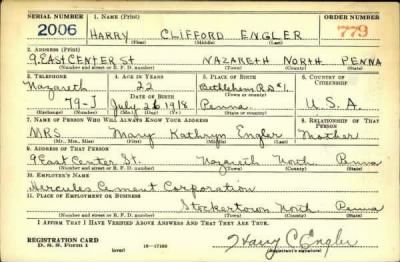 SERIAL NUMBER 1. NAME (Print) ORDER NUMBER
2006 HARRY CLIFFORD ENGLER 779
(First) (Middle) (Last)
2. ADDRESS (Print)
9 EAST CENTER St NAZARETH NORTH PENNA
(Number and street or R. F. D. number) (Town) (County) (State)
3. TELEPHONE 4. AGE IN YEARS 5. PLACE OF BIRTH 6. COUNTRY OF CITIZENSHIP
Nazareth 22 Bethlehem R.D.#1.
DATE OF BIRTH (Town or county)
79-J July 26 1918 Penna U.S.A.
(Exchange) (Number) (Mo.) (Day) (Yr.) (State or country)
7. NAME OF PERSON WHO WILL ALWAYS KNOW YOUR ADDRESS 8. RELATIONSHIP OF THAT PERSON
MRS Mary Kathryn Engler Mother
(Mr., Mrs., Miss) (First) (Middle) (Last)
9. ADDRESS OF THAT PERSON
9 East Center St. Nazareth North Penna
(Number and street or R. F. D. number) (Town) (County) (State)
10. EMPLOYER'S NAME
Hercules Cement Corporation
11. PLACE OF EMPLOYMENT OR BUSINESS
Stockertown North Penna
(Number and street or R. F. D. number) (Town) (County) (State)
I AFFIRM THAT I HAVE VERIFIED ABOVE ANSWERS AND THAT THEY ARE TRUE.
REGISTRATION CARD
D. S. S. Form 1 (over) 16-17105 Harry C Engler
(Registrant's signature)